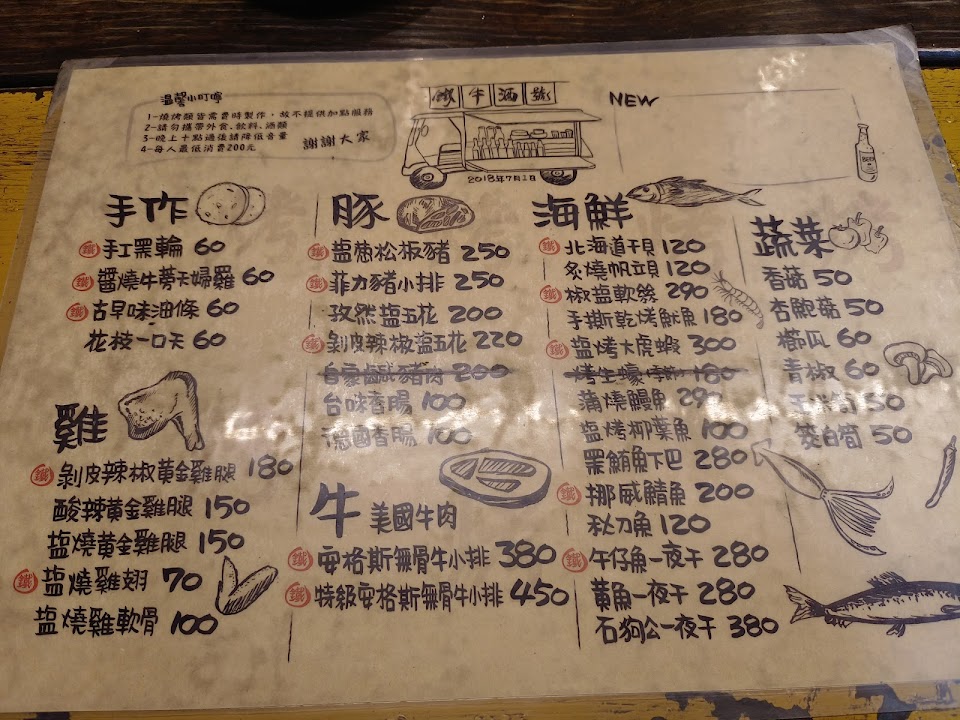 溫馨小叮嚀
1-燒烤類皆需費時製作，故不提供加點服務
2-請勿攜帶外食、飲料、酒類
3-晚上十點過後請降低音量
4-每人最低消費200元
謝謝大家
鐵牛酒彩
2018年7月1日
NEW
手作
鐵 手工黑輪 60
鐵 醬燒牛蒡天婦羅 60
鐵 古早味油條 60
花枝一口天 60
雞
鐵 剝皮辣椒黃金雞腿 180
酸辣黃金雞腿 150
塩燒黃金雞腿 150
鐵 塩燒雞翅 70
塩燒雞軟骨 100
豚
鐵 塩蔥松板豬 250
鐵 菲力豬小排 250
孜然塩五花 200
鐵 剝皮辣椒塩五花 220
自家鹹豬肉 200
台味香腸 100
德國香腸 100
牛 美國牛肉
鐵 安格斯無骨牛小排 380
鐵 特級安格斯無骨牛小排 450
海鮮
鐵 北海道干貝 120
炙燒帆立貝 120
鐵 椒塩軟絲 290
手撕乾烤魷魚 180
鐵 塩烤大虎蝦 300
烤生蠔 180
蒲燒鰻魚 290
塩烤柳葉魚 100
黑鮪魚下巴 280
鐵 挪威鯖魚 200
秋刀魚 120
鐵 午仔魚一夜干 280
黃魚一夜干 280
石狗公一夜干 380
蔬菜
香菇 50
杏鮑菇 50
櫛瓜 60
青椒 60
玉米筍 50
筊白筍 50